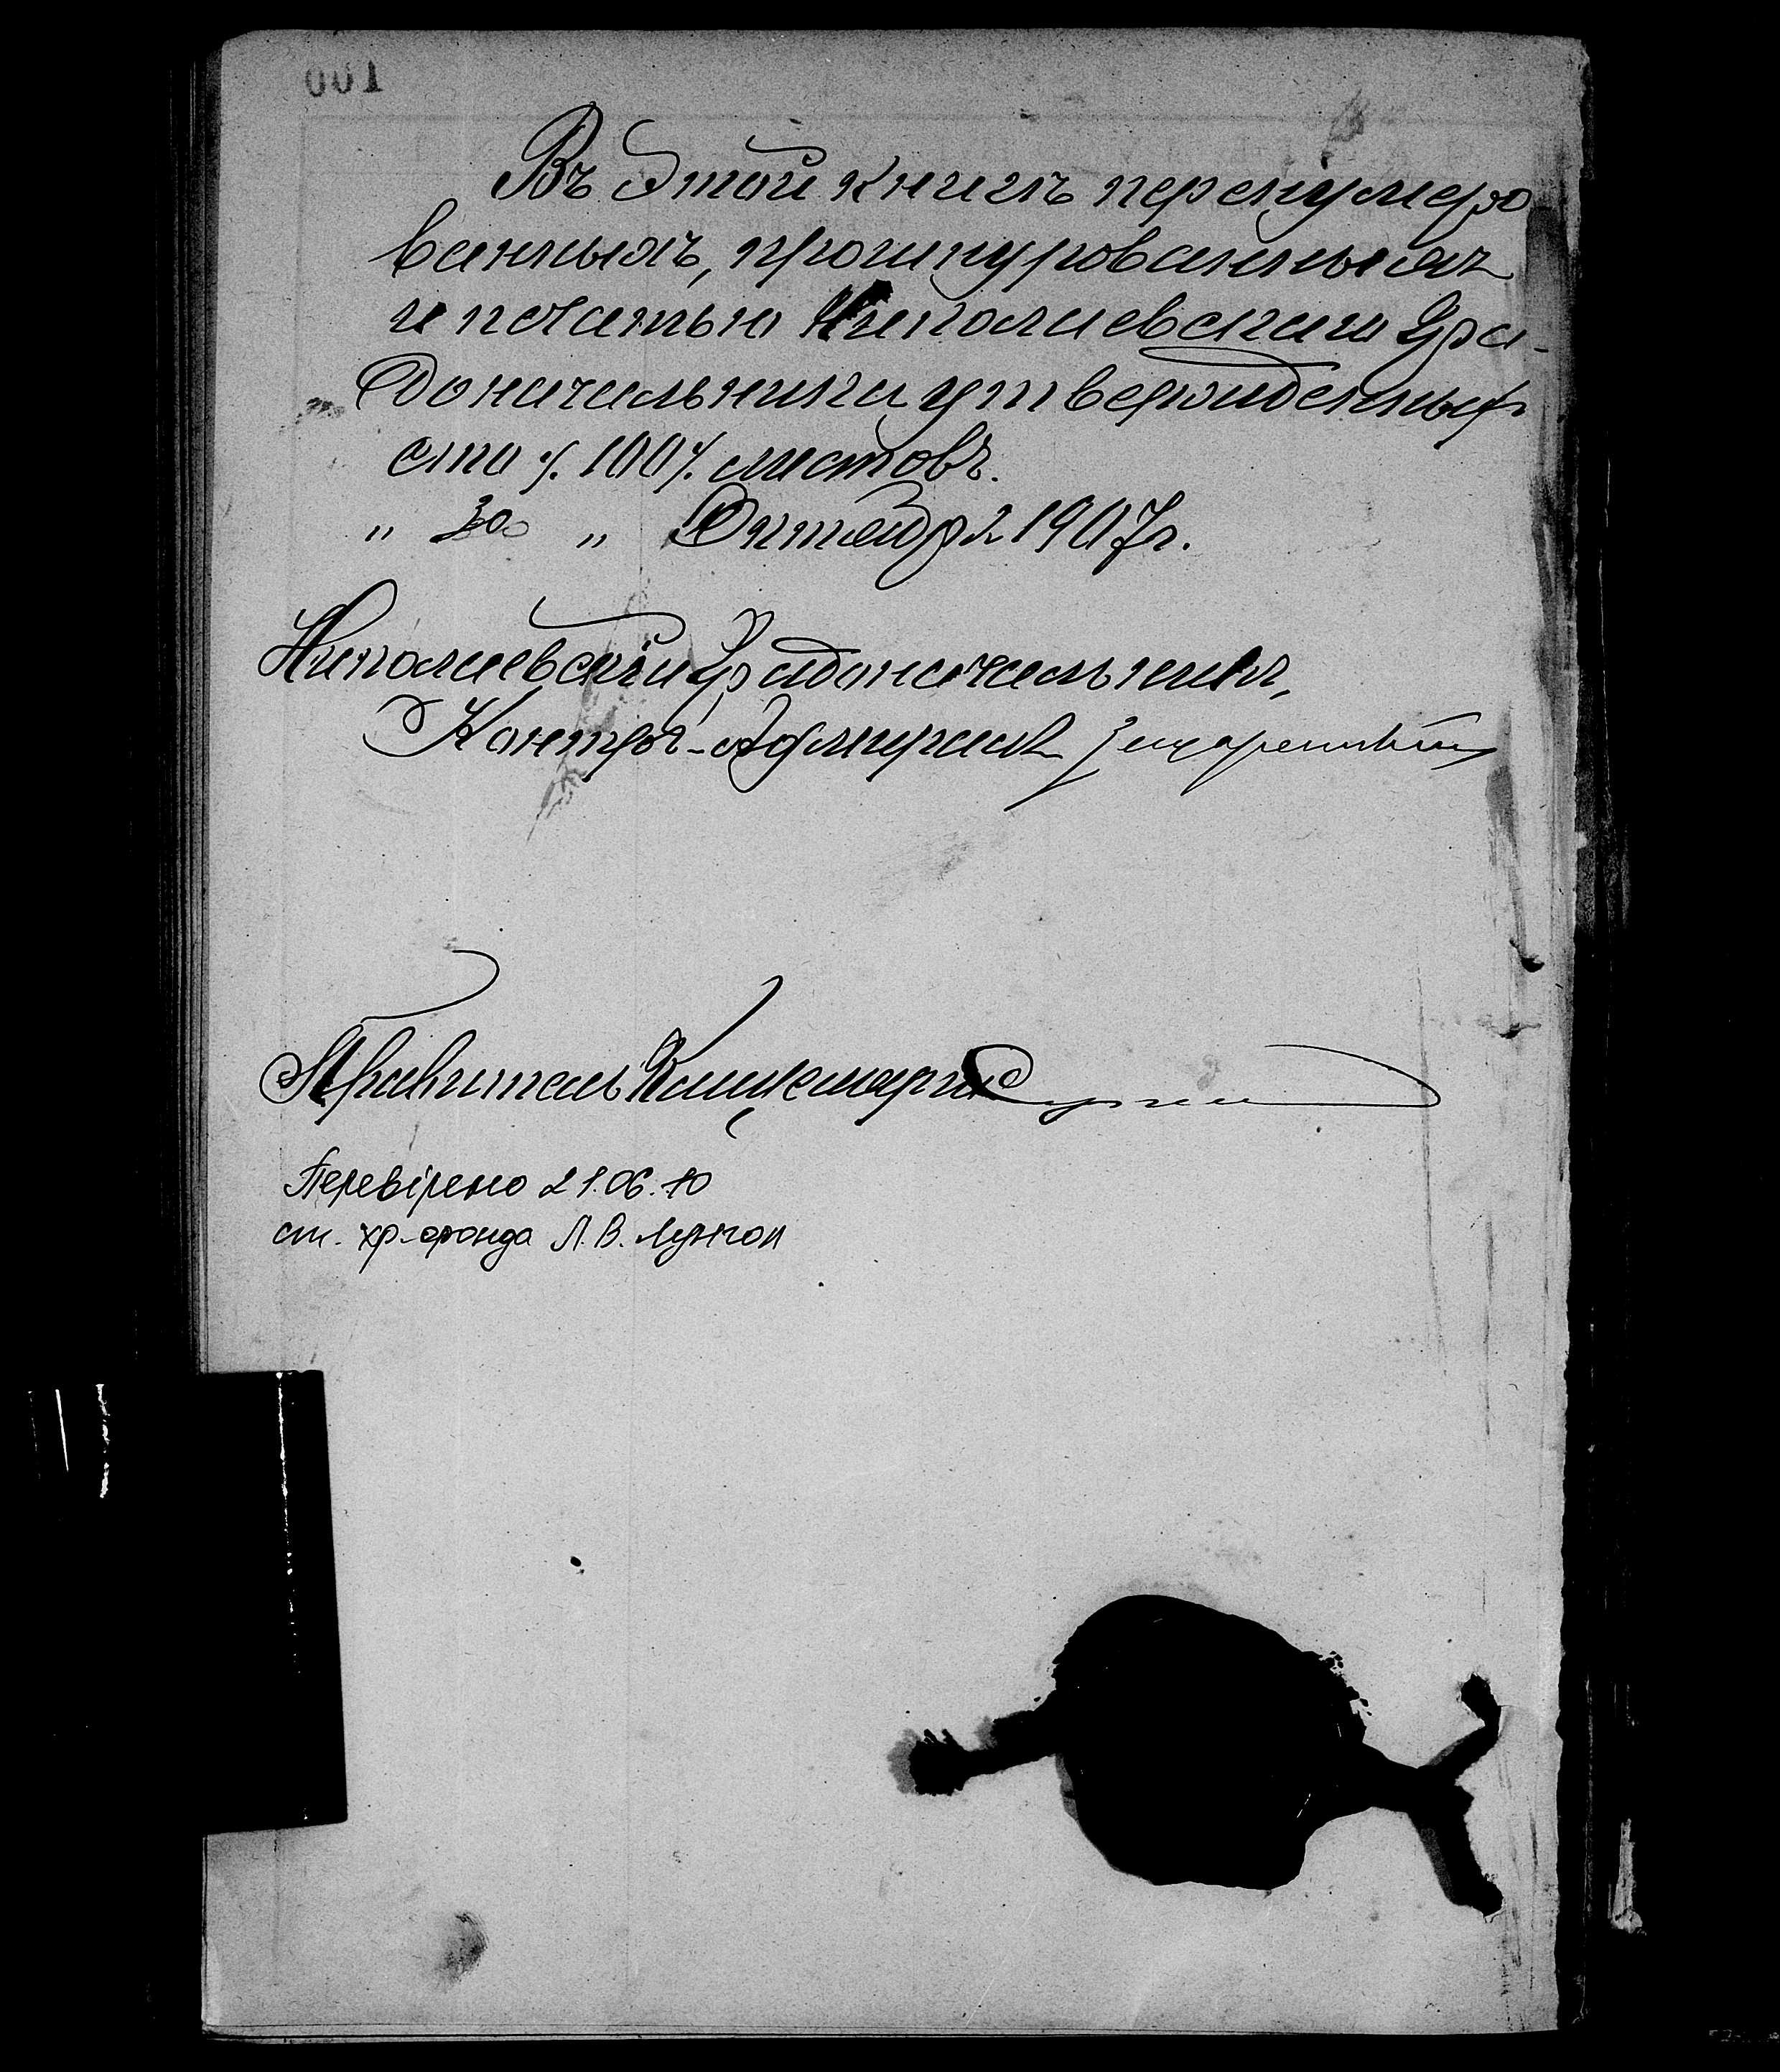 001
Въ этой книгѣ перенумеро
ванныхъ, прошнурованныхъ
и печатью Николаевскаго Гра-
доначальника утвержденныхъ
сто /. 100 /. листовъ.
" 30 " Октября 1907 г.
Николаевскій Градоначальникъ,
Контръ-Адмиралъ
Правитель Канцеляріи
Перевірено 21.06.10
ст. хр. фонда Л.В.